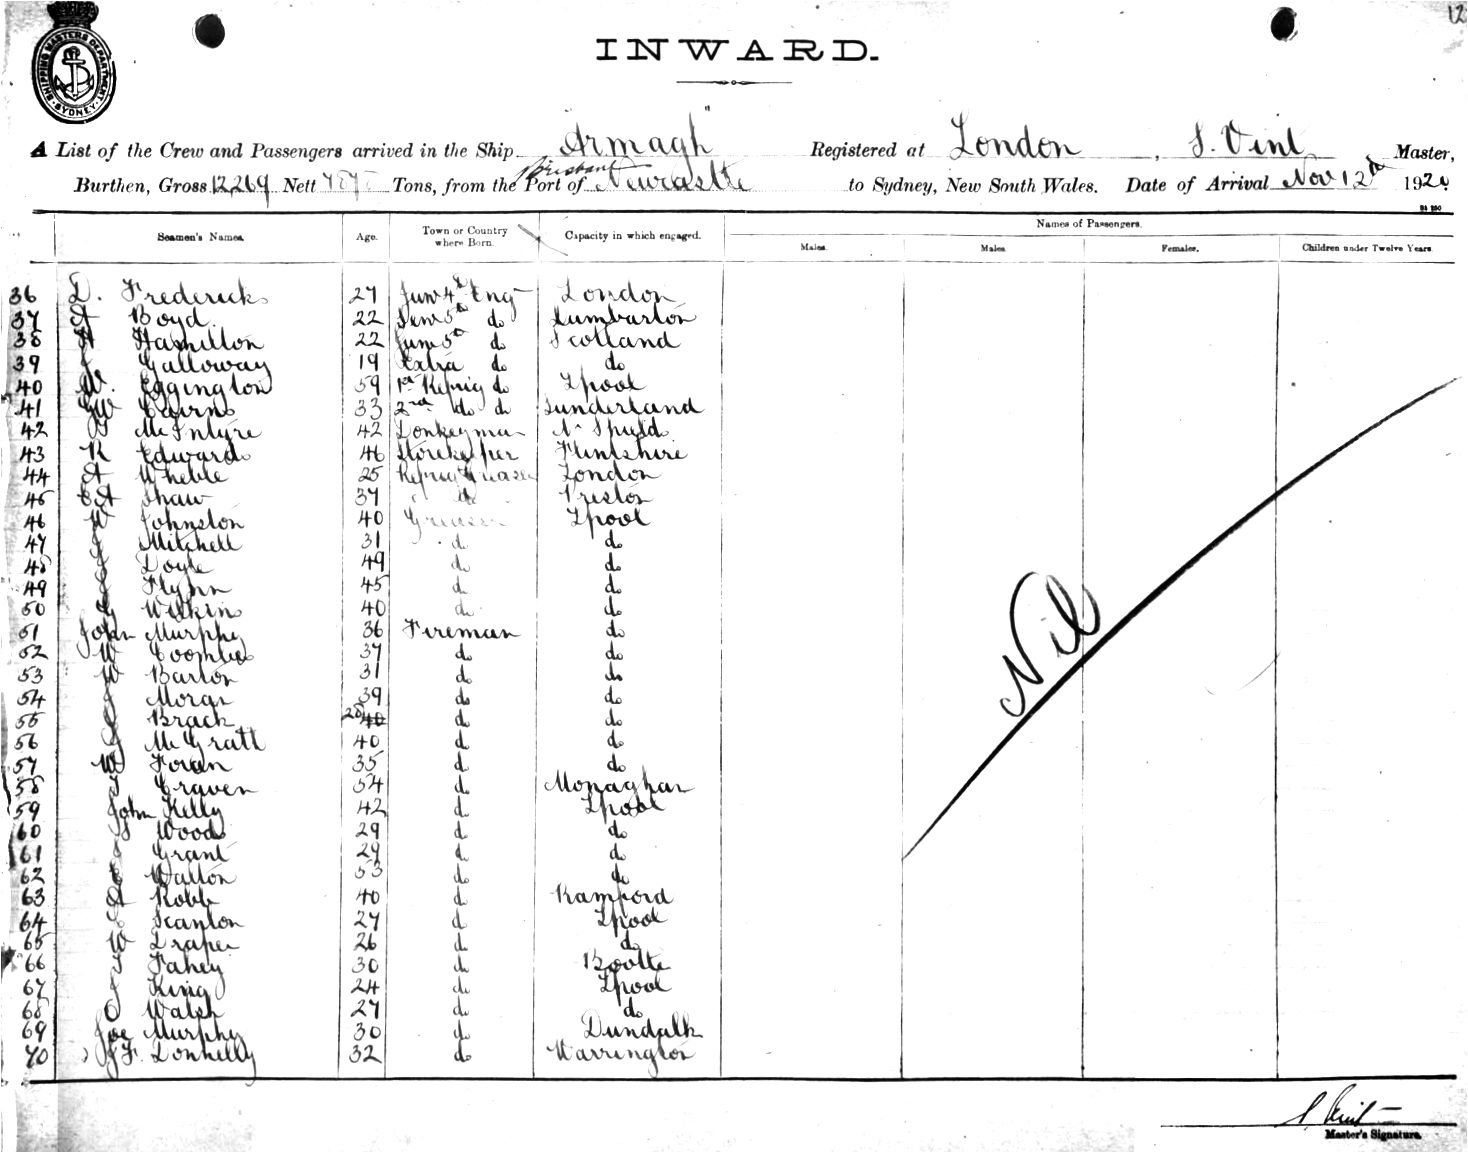 12
SHIPPING MASTERS DEPARTMENT
SYDNEY
INWARD.
A List of the Crew and Passengers arrived in the Ship "Armagh" Registered at London, S. Vint Master,
Brisbane
Burthen, Gross 12269 Nett Tons, from the Port of Newcastle to Sydney, New South Wales. Date of Arrival Nov 12th 192
Seamen's Names. Age. Town or Country where Born. Capacity in which engaged. Names of Passengers.
Males. Males. Females. Children under Twelve Years.
36 D. Fredericks 27 Jun 4th Eng London
37 A Boyd 22 Sen 5th do Dumbarton
38 H Hamilton 22 Jun 5th do Scotland
39 J Galloway 19 Extra do do
40 W. Eggington 59 1st Refrig do Lpool
41 GW Cairns 33 2nd do do Sunderland
42 McIntyre 42 Donkeyman N. Shields
43 R Edwards 46 Storekeeper Flintshire
44 A Wheble 25 Refrig Greaser London
45 Shaw 37 do Preston
46 W Johnston 40 Greaser Lpool
47 J Mitchell 31 do do
48 Doyle 49 do do
49 Flynn 45 do do
50 Wilkins 40 do do
51 John Murphy 36 Fireman do
52 W Coombes 37 do do
53 W Barton 31 do do
54 J Moran 39 do do
55 J Brack 28 40 do do
56 J McGrath 40 do do
57 W Foran 35 do do
58 T Craven 54 do Monaghan
59 John Kelly 42 do Lpool
60 Woods 29 do do
61 Grant 29 do do
62 Walton 53 do do
63 A Robb 40 do Ramford
64 Scanlon 27 do Lpool
65 W Draper 26 do do
66 T Fahey 30 do Bootle
67 J King 24 do Lpool
68 Walsh 27 do do
69 Joe Murphy 30 do Dundalk
70 J F. Donnelly 32 do Warrington
Nil
S. Vint
Master's Signature.